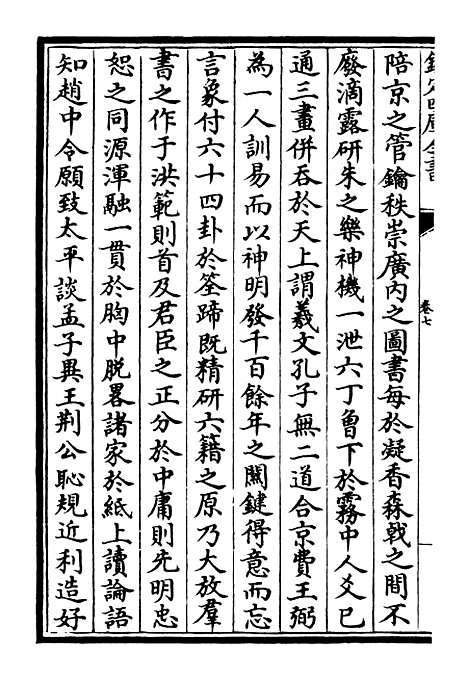 陪京之管鑰秩崇廣内之圖書每於凝香森戟之間不
廢滴露研朱之樂神機一泄六丁魯下於霧中人爻已
通三畫併吞於天上謂羲文孔子無二道合京費王弼
為一人訓易而以神明發千百餘年之關鍵得意而忘
言象付六十四卦於筌蹄既精研六籍之原乃大放羣
書之作于洪範則首及君臣之正分於中庸則先明忠
恕之同源渾融一貫於胸中脱畧諸家於紙上讀論語
知趙中令願致太平談孟子異王荆公恥規近利造好
卷七